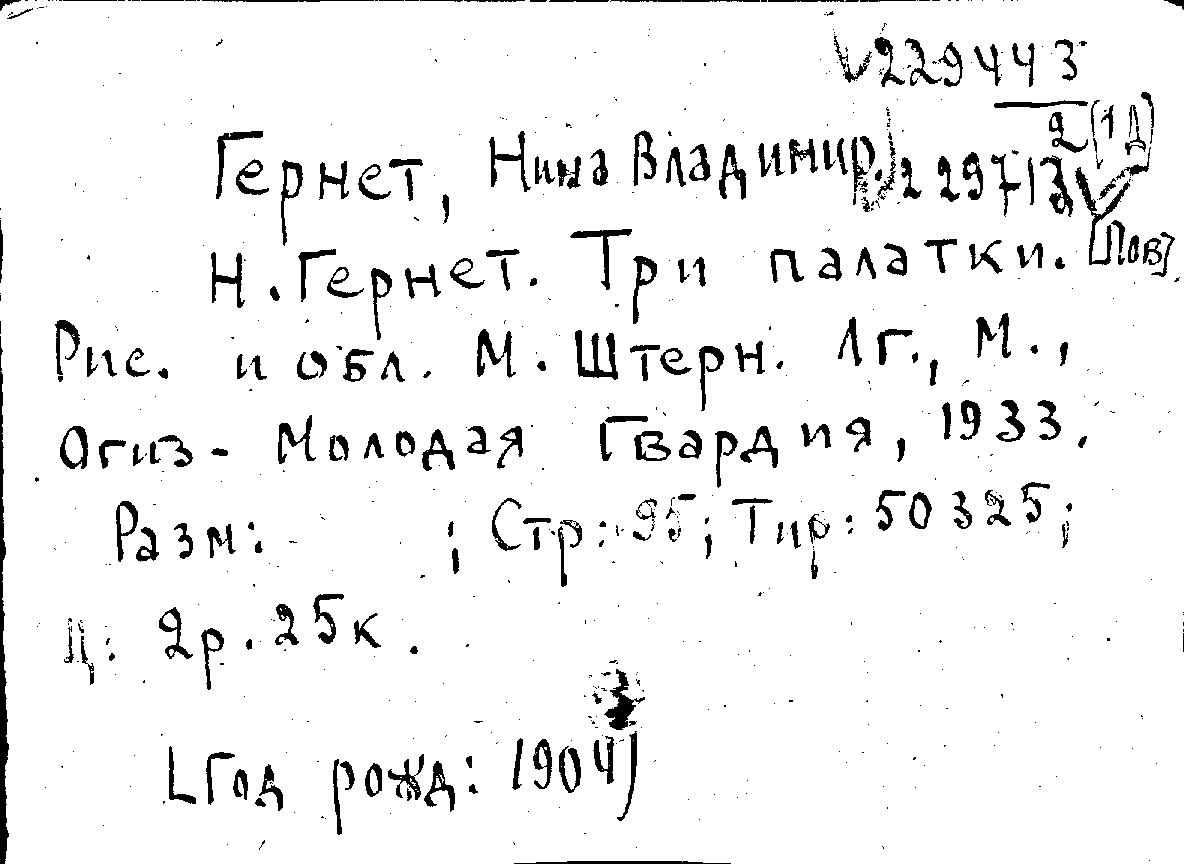 V229443
2 (1Д)
Гернет, Нина Владимир. 229713
Н. Гернет. Три палатки. [Пов]
Рис. и обл. М. Штерн. Лг., М.,
Огиз - Молодая Гвардия, 1933.
Разм: ; Стр: 95; Тир: 50325;
Ц: 2р. 25к.
[Год рожд: 1904]